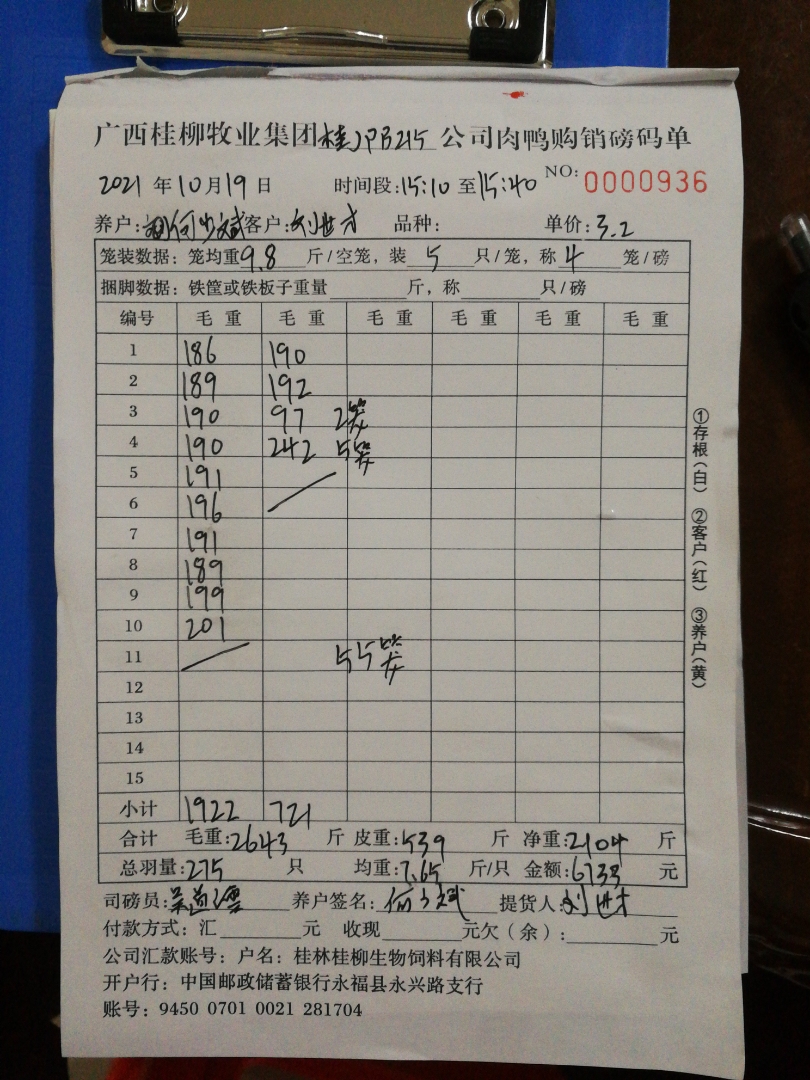 广西桂柳牧业集团桂JPB215公司肉鸭购销磅码单
2021年10月19日 时间段:15:10至15:40 NO:0000936
养户:何少斌 客户:刘世才 品种: 单价:3.2
笼装数据:笼均重9.8斤/空笼,装5只/笼,称4笼/磅
捆脚数据:铁筐或铁板子重量 斤,称 只/磅
编号 毛重 毛重 毛重 毛重 毛重 毛重
1 186 190
2 189 192
3 190 97 2笼
4 190 242 5笼
5 191
6 196
7 191
8 189
9 199
10 201
11 55笼
12
13
14
15
小计 1922 721
合计 毛重:2643斤 皮重:539斤 净重:2104斤
总羽量:275只 均重:7.65斤/只 金额:6733元
司磅员: 养户签名:何少斌 提货人:刘世才
付款方式:汇 元 收现 元欠(余): 元
公司汇款账号:户名:桂林桂柳生物饲料有限公司
开户行:中国邮政储蓄银行永福县永兴路支行
账号:9450 0701 0021 281704
①存根(白) ②客户(红) ③养户(黄)